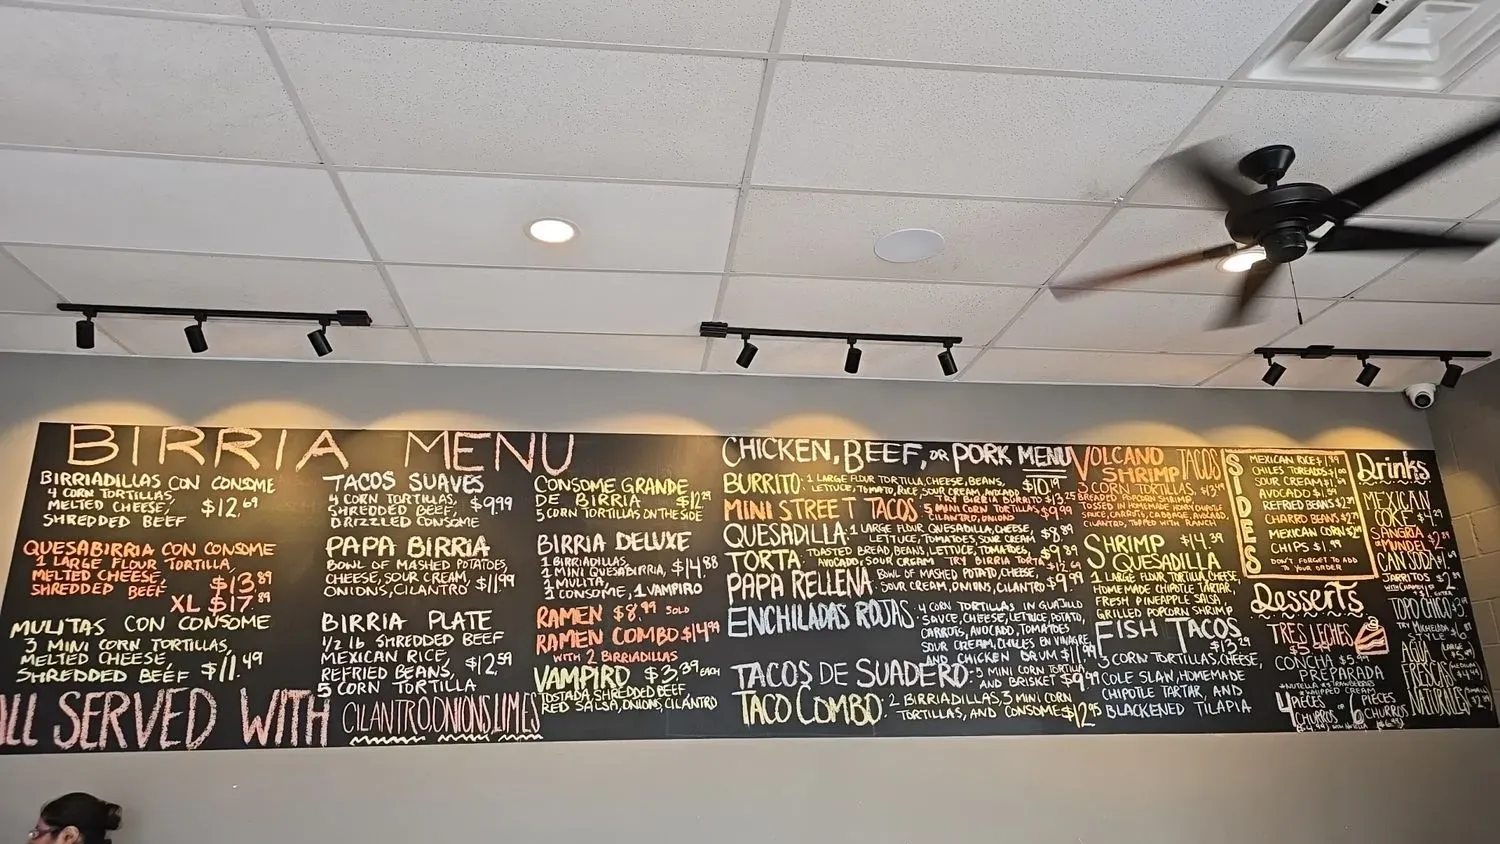 BIRRIA MENU
BIRRIADILLAS CON CONSOME
4 CORN TORTILLAS,
MELTED CHEESE, $12.69
SHREDDED BEEF
QUESABIRRIA CON CONSOME
1 LARGE FLOUR TORTILLA,
MELTED CHEESE, $13.89
SHREDDED BEEF
XL $17.89
MULITAS CON CONSOME
3 MINI CORN TORTILLAS,
MELTED CHEESE,
SHREDDED BEEF $11.49
ALL SERVED WITH CILANTRO,ONIONS,LIMES
TACOS SUAVES
4 CORN TORTILLAS,
SHREDDED BEEF, $9.99
DRIZZLED CONSOME
PAPA BIRRIA
BOWL OF MASHED POTATOES,
CHEESE, SOUR CREAM,
ONIONS, CILANTRO $11.99
BIRRIA PLATE
1/2 lb SHREDDED BEEF
MEXICAN RICE,
REFRIED BEANS, $12.59
5 CORN TORTILLA
CONSOME GRANDE
DE BIRRIA $12.29
5 CORN TORTILLAS ON THE SIDE
BIRRIA DELUXE
1 BIRRIADILLAS,
1 MINI QUESABIRRIA, $14.88
1 MULITA,
1 CONSOME, 1 VAMPIRO
RAMEN $8.99 SOLO
RAMEN COMBO $14.99
WITH 2 BIRRIADILLAS
VAMPIRO $3.39 EACH
TOSTADA, SHREDDED BEEF
RED SALSA, ONIONS, CILANTRO
CHICKEN, BEEF, OR PORK MENU
BURRITO: 1 LARGE FLOUR TORTILLA, CHEESE, BEANS, $10.19
LETTUCE, TOMATO, RICE, SOUR CREAM, AVOCADO
TRY BIRRIA BURRITO $13.25
MINI STREET TACOS: 5 MINI CORN TORTILLAS $9.99
CILANTRO, ONIONS
QUESADILLA: 1 LARGE FLOUR QUESADILLA, CHEESE,
LETTUCE, TOMATOES, SOUR CREAM $8.89
TORTA: TOASTED BREAD, BEANS, LETTUCE, TOMATOES, $9.39
AVOCADO, SOUR CREAM TRY BIRRIA TORTA $12.69
PAPA RELLENA: BOWL OF MASHED POTATO, CHEESE,
SOUR CREAM, ONIONS, CILANTRO $9.99
ENCHILADAS ROJAS: 4 CORN TORTILLAS IN GUAJILLO
SAUCE, CHEESE, LETTUCE, POTATO,
CARROTS, AVOCADO, TOMATOES
SOUR CREAM, CHILES EN VINAGRE,
AND CHICKEN DRUM $11.99
TACOS DE SUADERO: 5 MINI CORN TORTILLA,
AND BRISKET $9.99
TACO COMBO: 2 BIRRIADILLAS, 3 MINI CORN
TORTILLAS, AND CONSOME $12.95
VOLCANO
SHRIMP TACOS
3 CORN TORTILLAS
BREADED POPCORN SHRIMP,
TOSSED IN HOMEMADE HONEY CHIPOTLE
SAUCE, CARROTS, CABBAGE, AVOCADO,
CILANTRO, TOPPED WITH RANCH
SHRIMP $14.39
QUESADILLA
1 LARGE FLOUR TORTILLA, CHEESE,
HOMEMADE CHIPOTLE TARTAR,
FRESH PINEAPPLE SALSA,
GRILLED POPCORN SHRIMP
FISH TACOS
$13.29
3 CORN TORTILLAS, CHEESE,
COLE SLAW, HOMEMADE
CHIPOTLE TARTAR, AND
BLACKENED TILAPIA
SIDES
MEXICAN RICE
CHILES TOREADOS
SOUR CREAM
AVOCADO
REFRIED BEANS
CHARRO BEANS
MEXICAN CORN
CHIPS $1.99
DON'T FORGET TO ADD
TO YOUR ORDER!
Desserts
TRES LECHES
CONCHA
PREPARADA
+NUTELLA +STRAWBERRIES
+WHIPPED CREAM
4 PIECES CHURROS
OR
6 PIECES CHURROS
Drinks
MEXICAN
COKE
SANGRIA
MUNDET
CAN SODA
JARRITOS
TOPO CHICO
TRY MICHELADA
STYLE
AGUA
FRESCAS
NATURALES